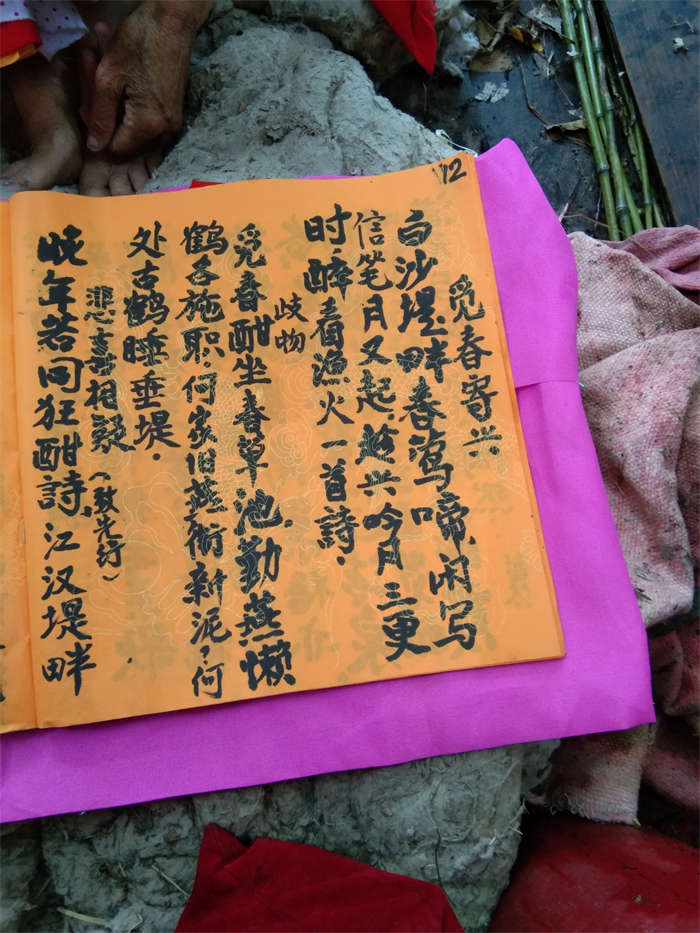 12
觅春寄兴
白沙堤畔春莺啼闲写
信笔月又起趁兴吟月三更
时醉看渔火一首詩.
歧物
觅春酣坐春草池.勤燕懒
鹤各施职.何家旧燕衔新泥,何
处古鹤睡垂堤.
悲喜相疑(致先行)
晚年若同狂酣詩.江汉堤畔